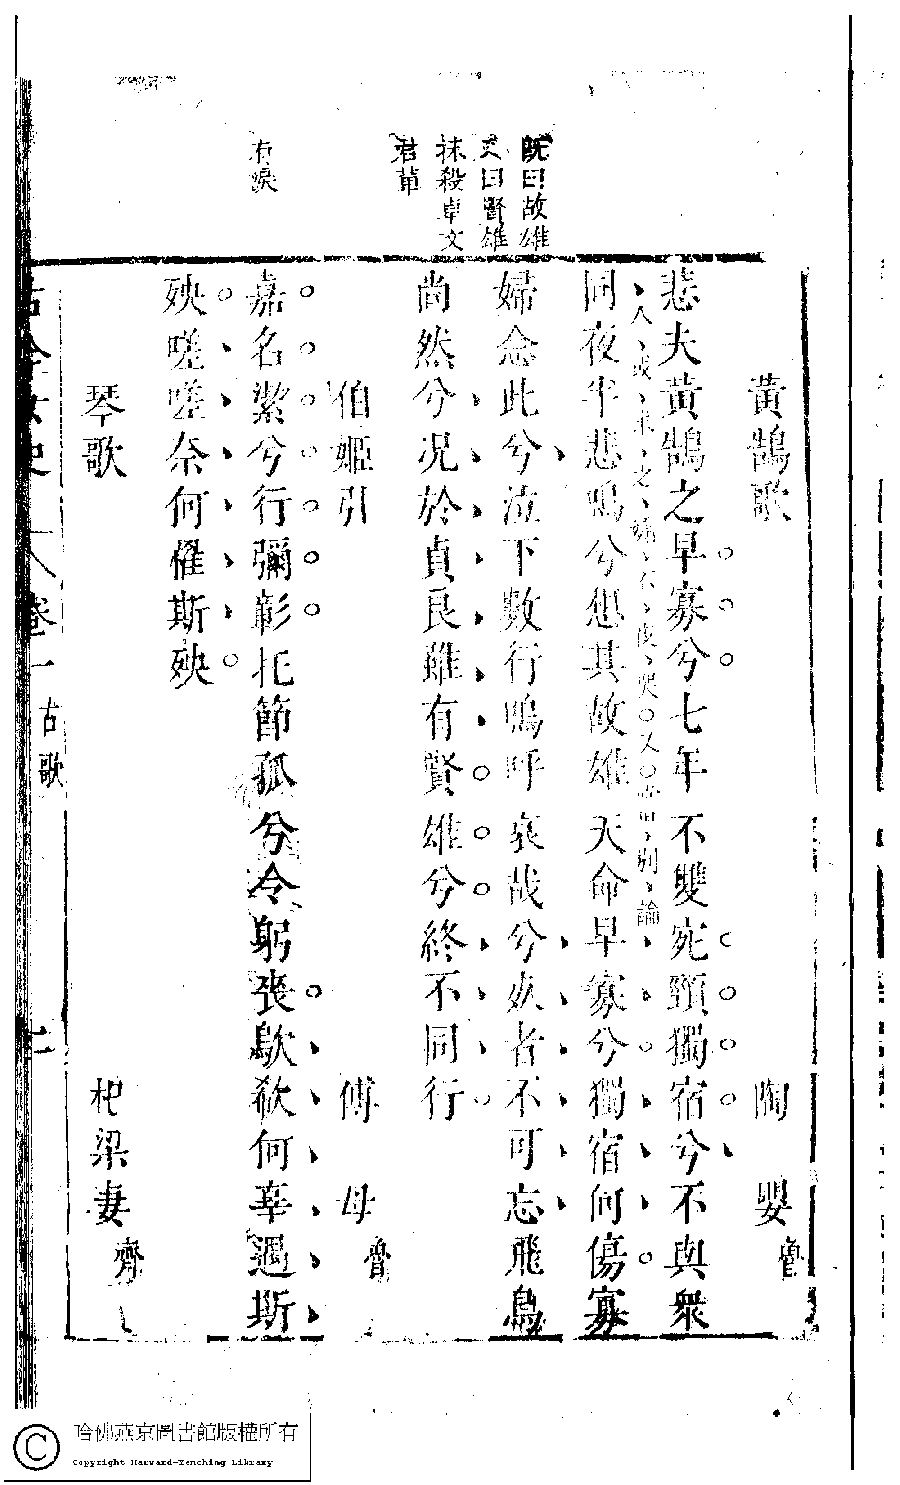 既曰故雄
又曰賢雄
抹殺卓文
君輩
有淚
黃鵠歌 陶嬰 魯
悲夫黃鵠之早寡兮七年不雙宛頸獨宿兮不與衆
人或 之 不 哭人 別論
同夜半悲鳴兮想其故雄天命早寡兮獨宿何傷寡
婦念此兮泣下數行嗚呼哀哉兮死者不可忘飛鳥
尚然兮况於貞良雖有賢雄兮終不同行
伯姬引 傅母 魯
嘉名絜兮行彌彰托節孤兮令躬喪歇欷何辜遇斯
殃嗟嗟奈何罹斯殃
琴歌 杞梁妻 齊
古今女史 卷一 古歌 七
哈佛燕京圖書館版權所有
Copyright Harvard-Yenching Library